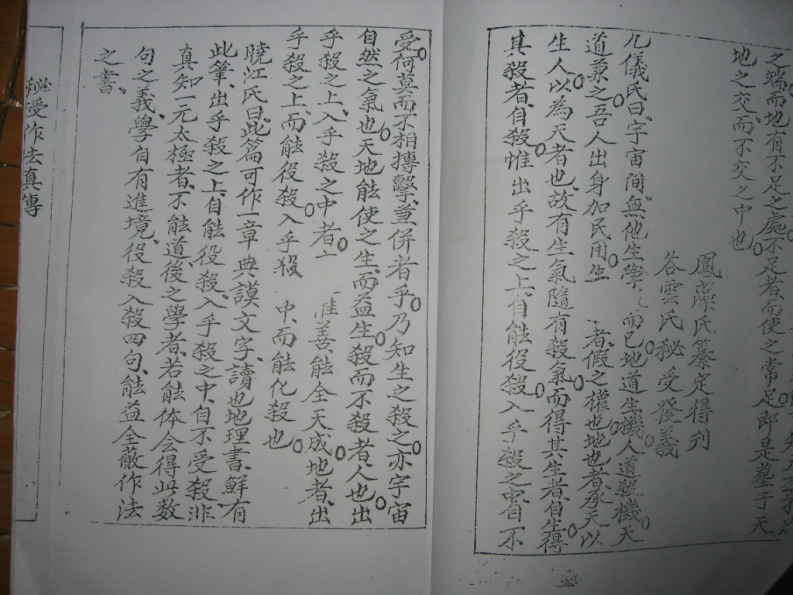 之端而地有不足之處不足者而使之常足即是墓于天
地之交而不交之中也
鳳潔氏纂定得列
谷雲氏秘受發義
九儀氏曰宇宙間無他生學而已地道生機人道殺機天
道兼之吾人出身加民用生 者假之權也地也者承天以
生人以為天者也故有生氣隨有殺氣而得其生者自生得
其殺者自殺惟出乎殺之上自能役殺入乎殺之中自不
受何莫而不相搏擊兼併者乎乃知生之殺之亦宇宙
自然之氣也天地能使之生而益生殺而不殺者人也出
乎殺之上入乎殺之中者 惟善能全天成地者出
乎殺之上而能役殺入乎殺 中而能化殺也
曉江氏曰此篇可作一章典謨文字讀也地理書鮮有
此筆出乎殺之上自能役殺入乎殺之中自不受殺非
真知一元太極者不能道後之學者若能体会得此数
句之義學自有進境役殺入殺四句能益全蔽作法
之書
秘受作法真傳